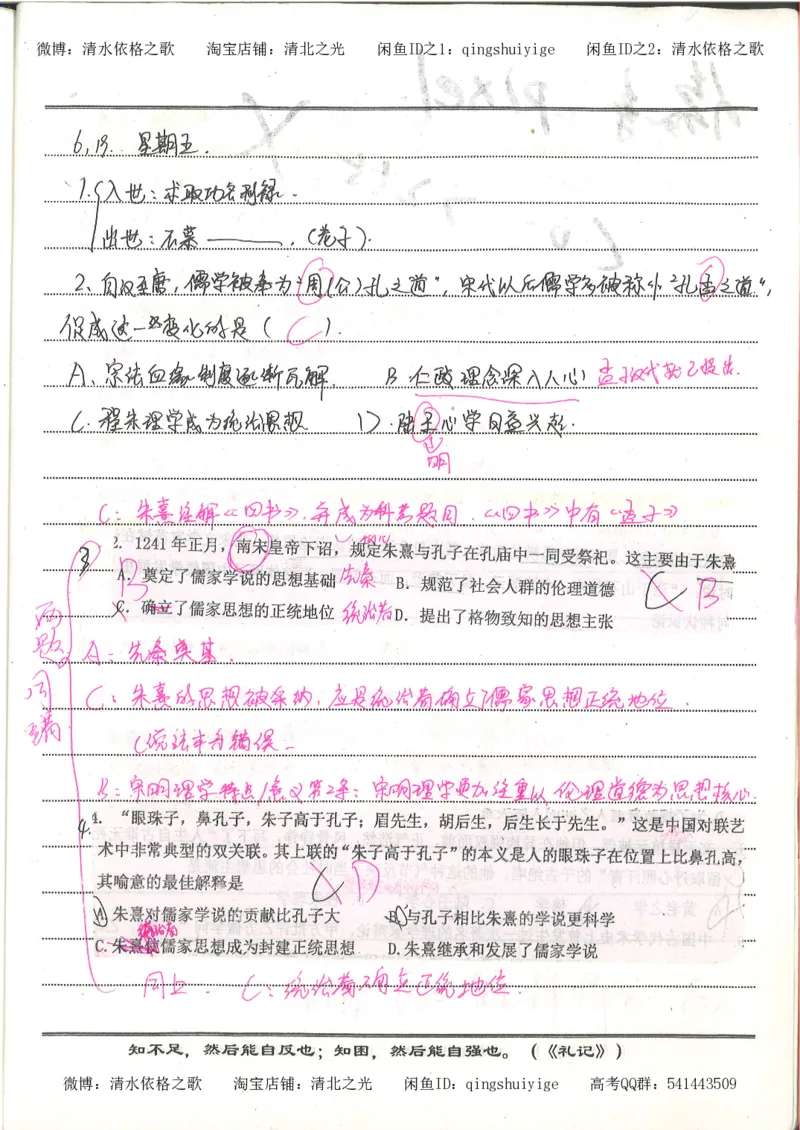 微博：清水依格之歌 淘宝店铺：清北之光 闲鱼ID之1：qingshuiyige 闲鱼ID之2：清水依格之歌
6,13. 星期五.
1.{入世：求取功名利禄.
出世：不慕———.（老子).
2、自汉至唐，儒学被奉为"周(公)孔之道"，宋代以后儒学多被称作"孔孟之道"，
促成这一变化的是（ C ）.
A、宗法血缘制度逐渐瓦解. B.仁政理念深入人心 孟子时代就已提出.
C.程朱理学成为统治思想 D.陆王心学日益兴起.
明
C：朱熹注解《四书》，并成为科考题目.《四书》中有《孟子》
3 2. 1241年正月，南宋皇帝下诏，规定朱熹与孔子在孔庙中一同受祭祀。这主要由于朱熹
A. 奠定了儒家学说的思想基础 先秦 B. 规范了社会人群的伦理道德
B
C. 确立了儒家思想的正统地位 统治者 D. 提出了格物致知的思想主张
B
两题同错
A：先秦奠基.
C：朱熹的思想被采纳，应是统治者确立了儒家思想正统地位.
C说法本身错误.
B：宋明理学特点/意义第2条：宋明理学更加注重以伦理道德为思想核心.
4. 4. “眼珠子，鼻孔子，朱子高于孔子；眉先生，胡后生，后生长于先生。”这是中国对联艺
术中非常典型的双关联。其上联的“朱子高于孔子”的本义是人的眼珠子在位置上比鼻孔高，
其喻意的最佳解释是
D
A 朱熹对儒家学说的贡献比孔子大 B 与孔子相比朱熹的学说更科学
统治者
C.朱熹使儒家思想成为封建正统思想 D.朱熹继承和发展了儒家学说
同上. C：统治者确立正统地位.
知不足，然后能自反也；知困，然后能自强也。（《礼记》）
微博：清水依格之歌 淘宝店铺：清北之光 闲鱼ID：qingshuiyige 高考QQ群：541443509